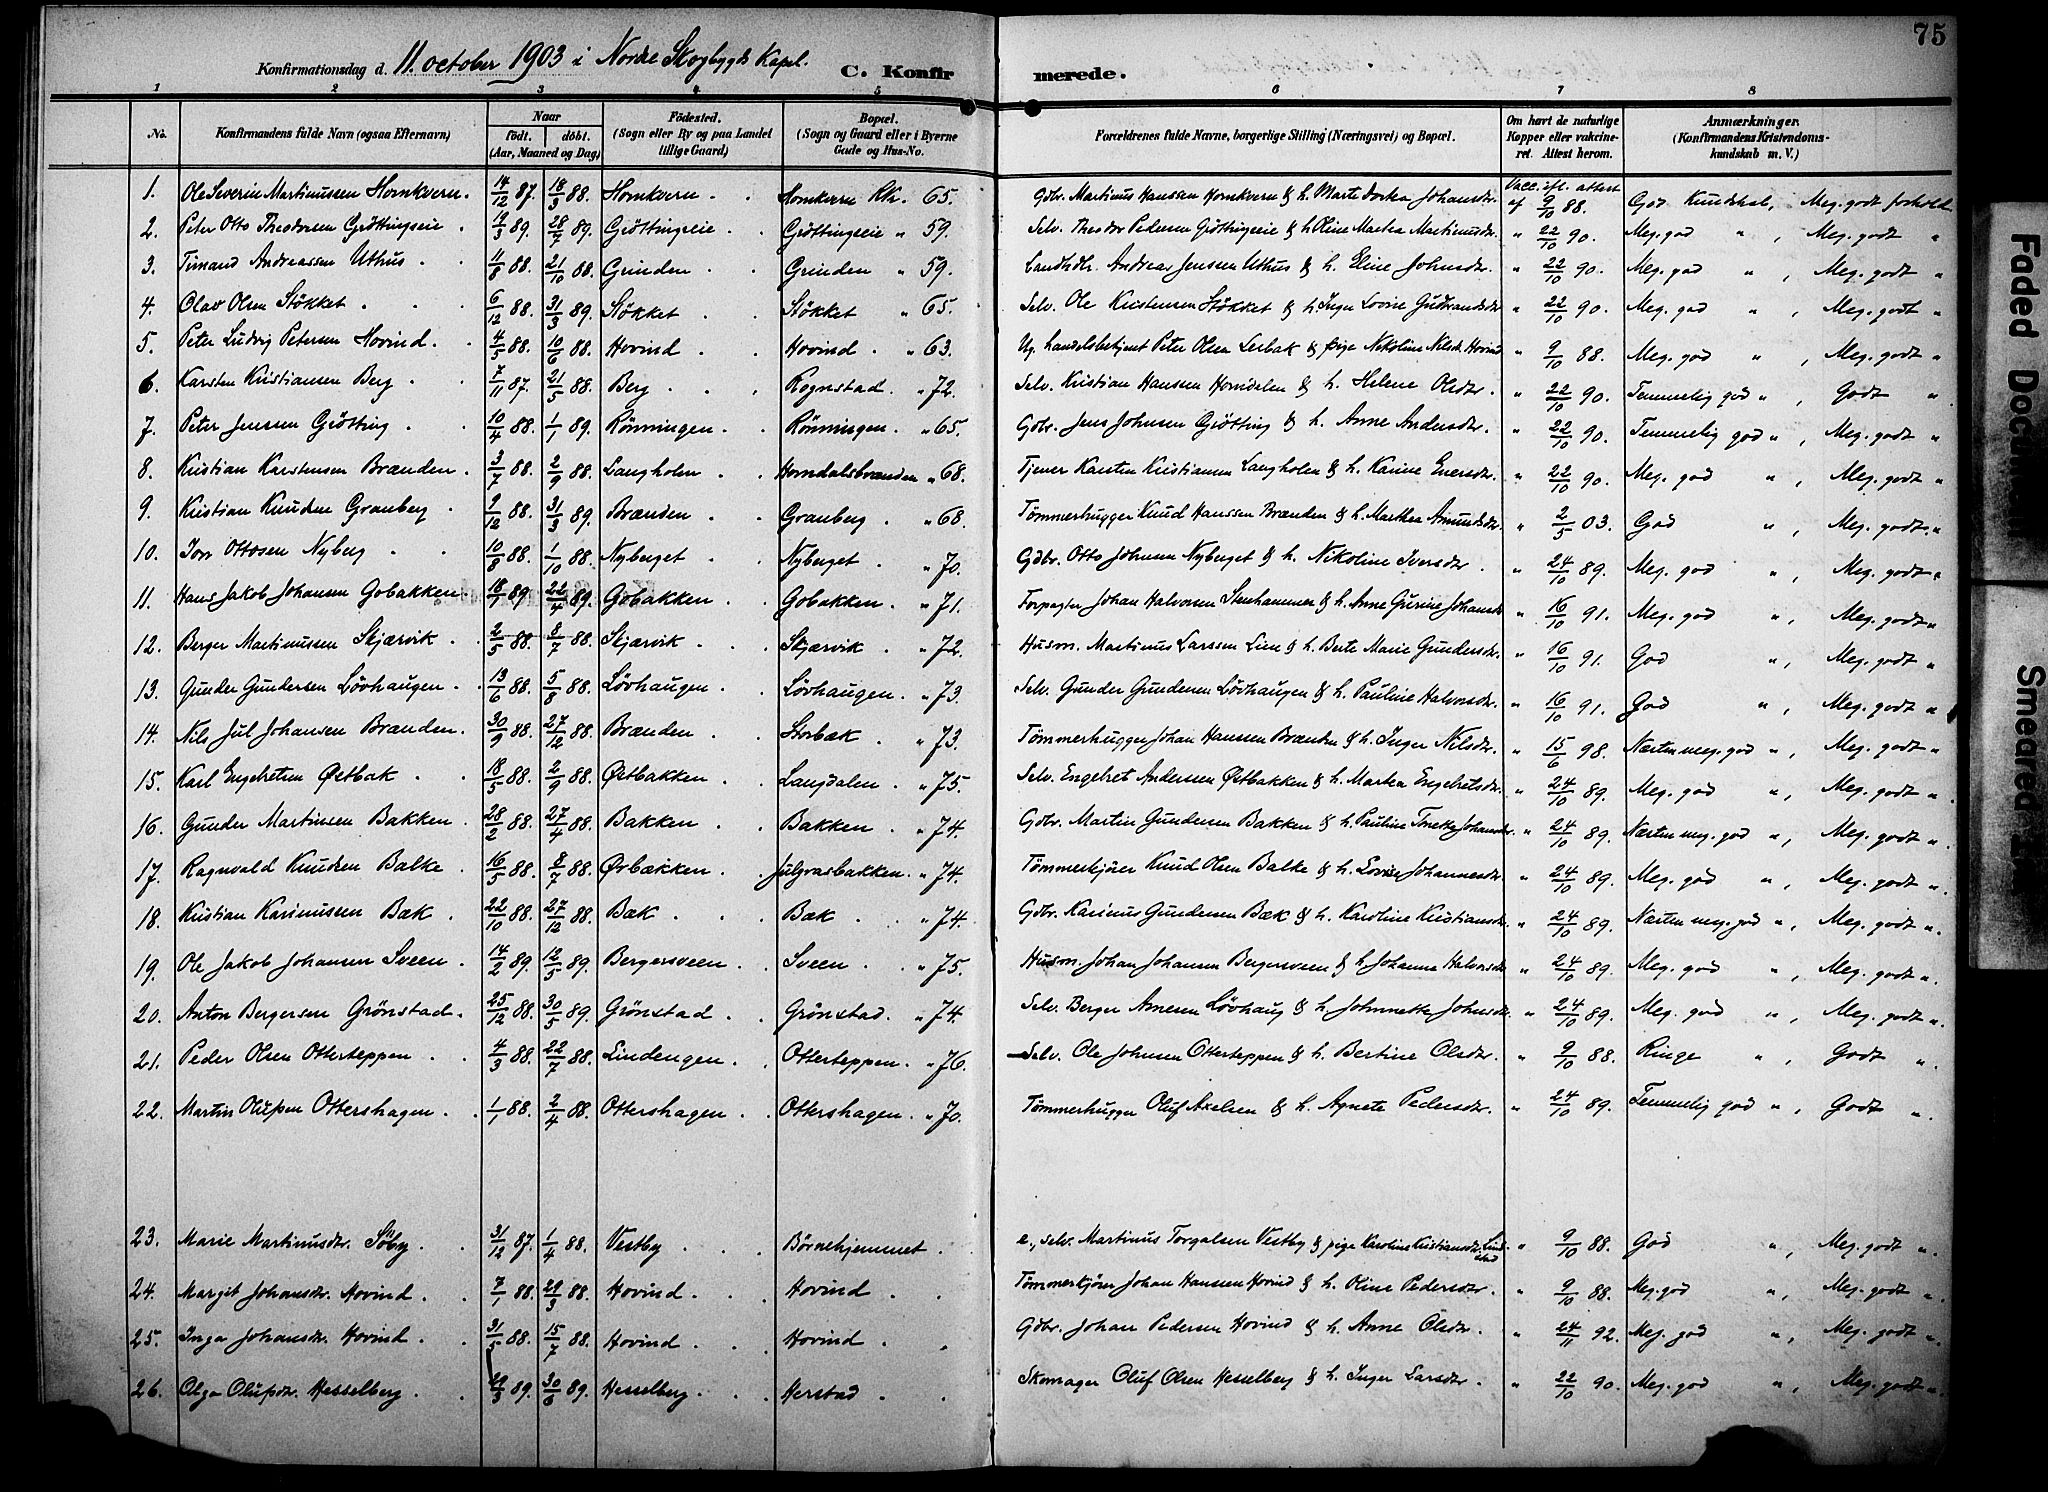 75
Konfirmationsdag d. 11. october 1903 i Nordre Skogbygds Kapel. C. Konfirmerede.
1 2 3 4 5 6 7 8
No. Konfirmandens fulde Navn (ogsaa Efternavn) Naar født. døbt. (Aar, Maaned og Dag) Fødested. (Sogn eller By og paa Landet tillige Gaard) Bopæl. (Sogn og Gaard eller i Byerne Gade og Hus-No. Forældrenes fulde Navne, borgerlige Stilling (Næringsvei) og Bopæl. Om havt de naturlige Kopper eller vakcineret. Attest herom. Anmærkninger. (Konfirmandens Kristendomskundskab m. V.)
1. Ole Severin Martinussen Hornkvern. 14/12 87. 18/3 88. Hornkvern Hornkvern 65. Gdbr. Martinus Hanssen Hornkvern & h. Marte Dorka Johansdr. Vacc. ifl. attest af 9/10 88. God Kundskab, Meg. godt forhold
2. Peter Otto Theodorsen Grøttingseie 19/3 89. 28/7 89. Grøttingseie Grøttingseie " 59. Selv. Theodor Pedersen Grøttingseie & h. Oline Martea Martinusdr. " 22/10 90. Meg. god " , Meg. godt "
3. Timand Andreassen Uthus 11/8 88. 21/10 88. Grinden Grinden " 59. Landhdlr. Andreas Jenssen Uthus & h. Eline Johnsdr. " 22/10 90. Meg. god " , Meg. godt "
4. Olav Olsen Støkket 6/12 88. 31/3 89. Støkket Støkket " 65. Selv. Ole Kristensen Støkket & h. Inger Lovine Gudbrandsdr " 22/10 90. Meg. god " , Meg. godt "
5. Peter Ludvig Petersen Hovind. 4/5 88. 10/6 88. Hovind Hovind " 63. Ug. handelsbetjent Peter Olsen Lerbak & pige Nikoline Nilsdr. Hovind " 9/10 88. Meg. god " , Meg. godt "
6. Karsten Kristiansen Berg 7/11 87. 21/5 88. Berg Rognstad " 72. Selv. Kristian Hanssen Horndalen & h. Helene Olsdr. " 22/10 90. Temmelig god " , Godt "
7. Peter Jenssen Grøtting 10/4 88. 1/1 89. Rønningen Rønningen " 65. Gdbr. Jens Johnsen Grøtting & h. Anne Andersdr. " 22/10 90. Temmelig god " , Meg. godt "
8. Kristian Karstensen Brænden 3/7 88. 2/9 88. Langholen Horndalsbrænden " 68. Tjener Karsten Kristiansen Langholen & h. Karine Enersdr. " 22/10 90. Meg. god " , Meg. godt "
9. Kristian Knudsen Granberg 9/12 88. 31/3 89. Brænden Granberg " 68. Tømmerhugger Knud Hanssen Brænden & h. Marthea Amundsdr " 2/5 03. God " , Meg. godt "
10. Ottosen Nyberg 10/8 88. 1/10 88. Nyberget Nyberget " 70. Gdbr. Otto Johnsen Nyberget & h. Nikoline Iversdr. " 24/10 89. Meg. god " , Meg. godt "
11. Hans Jakob Johansen Gobakken 18/1 89. 22/4 89. Gobakken Gobakken " 71. Forpagter Johan Halvorsen Stenhammer & h. Anne Gurine Johansdr " 16/10 91. Meg. god " , Meg. godt "
12. Berger Martinussen Skjærvik 2/5 88. 8/7 88. Skjærvik Skjærvik " 72. Husm. Martinus Larssen Lien & h. Berte Marie Gundersdr. " 16/10 91. God " , Meg. godt "
13. Gunder Gundersen Løvhaugen 13/6 88. 5/8 88. Løvhaugen Løvhaugen " 73. Selv. Gunder Gundersen Løvhaugen & h. Pauline Halvorsdr. " 16/10 91. God " , Meg. godt "
14. Nils Jul Johansen Brænden 30/9 88. 27/12 88. Brænden Storbæk " 73. Tømmerhugger Johan Hanssen Brænden & h. Inger Nilsdr. " 15/6 98. Næsten meg. god " , Meg. godt "
15. Karl Engebretsen Østbak 18/5 88. 2/9 88. Østbakken Langdalen " 75. Selv. Engebret Andersen Østbakken & h. Martea Engebretsdr. " 24/10 89. Meg. god " , Meg. godt "
16. Gunder Martinsen Bakken 28/2 88. 27/4 88. Bakken Bakken " 74. Gdbr. Martin Gundersen Bakken & h. Pauline Johansdr. " 24/10 89. Næsten meg. god " , Meg. godt "
17. Ragnvald Knudsen Balke 16/5 88. 8/7 88. Ørbækken Julgrasbakken " 74. Tømmerkjører Knud Olsen Balke & h. Lovise Johannesdr " 24/10 89. Meg. god " , Meg. godt "
18. Kristian Karinussen Bæk 22/10 88. 27/12 88. Bæk Bæk " 74. Gdbr. Karinus Gundersen Bæk & h. Karoline Kristiansdr. " 24/10 89. Næsten meg. god " , Meg. godt "
19. Ole Jakob Johansen Sveen 14/2 89. 12/5 89. Bergersveen Sveen " 75. Husm. Johan Johansen Bergersveen & h. Johanne Halvorsdr " 24/10 89. Meg. god " , Meg. godt "
20. Anton Bergersen Grønstad 25/12 88. 30/5 89. Grønstad Grønstad " 74. Selv. Berger Arnesen Løvhaug & h. Johnnette Johnsdr. " 24/10 89. Meg. god " , Meg. godt "
21. Peder Olsen Otterteppen 4/3 88. 22/7 88. Lindengen Otterteppen " 76. Selv. Ole Johnsen Otterteppen & h. Bertine Olsdr. " 9/10 88. Ringe " , Godt "
22. Martin Olufsen Ottershagen 1/1 88. 2/4 88. Ottershagen Ottershagen " 70. Tømmerhugger Oluf Axelsen & h. Agnete Pedersdr. " 24/10 89. Temmelig god " , Godt "
23. Marie Martinusdr. Søby 31/12 87. 1/4 88. Vestby Børnehjemmet e., selv. Martinus Torgalsen Vestby & pige Karoline Kristiansdr. Lindstad " 9/10 88. God " , Meg. godt "
24. Margit Johansdr. Hovind 7/1 88. 29/3 88. Hovind Hovind Tømmerkjører Johan Hanssen Hovind & h. Oline Pedersdr. " 9/10 88. Meg. god " , Meg. godt "
25. Inga Johansdr. Hovind 31/5 88. 15/7 88. Hovind Hovind Gdbr. Johan Pedersen Hovind & h. Anne Olsdr. " 24/11 92. Meg. god " , Meg. godt "
26. Olga Olufsdr. Hesselberg 29/3 89. 30/6 89. Hesselberg Herstad Skomager Oluf Olsen Hesselberg & h. Inger Larsdr. " 22/10 90. Meg. god " , Meg. godt "
Faded Document
Smeared